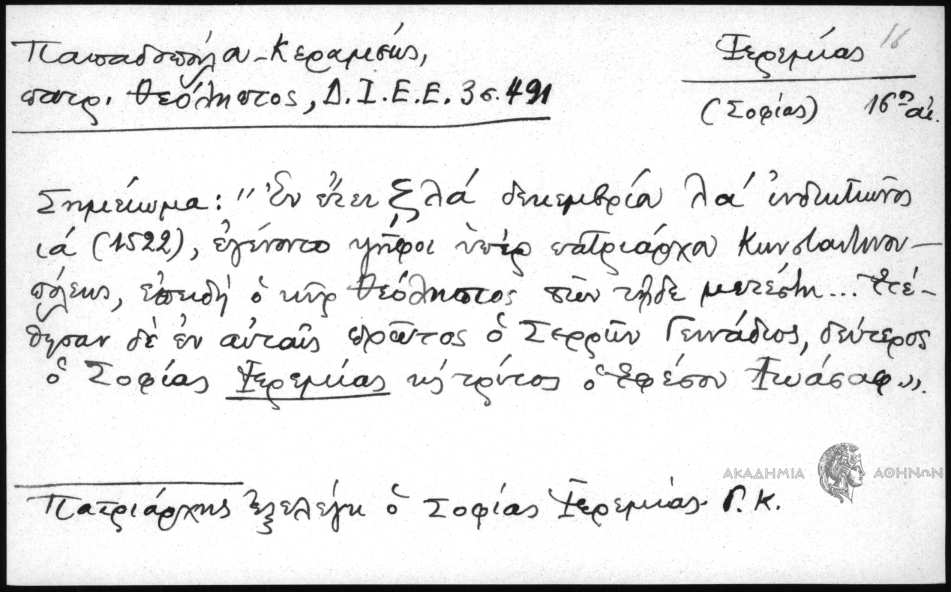 Παπαδοπούλα-Κεραμέως,
πατρ. Θεόληπτος, Δ.Ι.Ε.Ε. 3 σ. 491
Ἱερεμίας 16
(Σοφίας) 16ης αἰ.
Σημείωμα: "Ἐν ἔτει ξλά δεκεμβρία λα' ἰνδικτιῶνος
ιά (1522), ἐγένοντο ψῆφοι ὑπέρ πατριάρχα Κωνσταντινου-
πόλεως, ἐπειδή ὁ κῦρ Θεόληπτος τῶν τῇδε μετέστη... Ἐτέ-
θησαν δὲ ἐν αὐταῖς πρῶτος ὁ Σερρῶν Γεννάδιος, δεύτερος
ὁ Σοφίας Ἱερεμίας κ τρίτος ὁ Ἐφέσου Ἰωάσαφ".
ΑΚΑΔΗΜΙΑ ΑΘΗΝΩΝ
Πατριάρχης ἐξελέγη ὁ Σοφίας Ἱερεμίας. Γ. Κ.